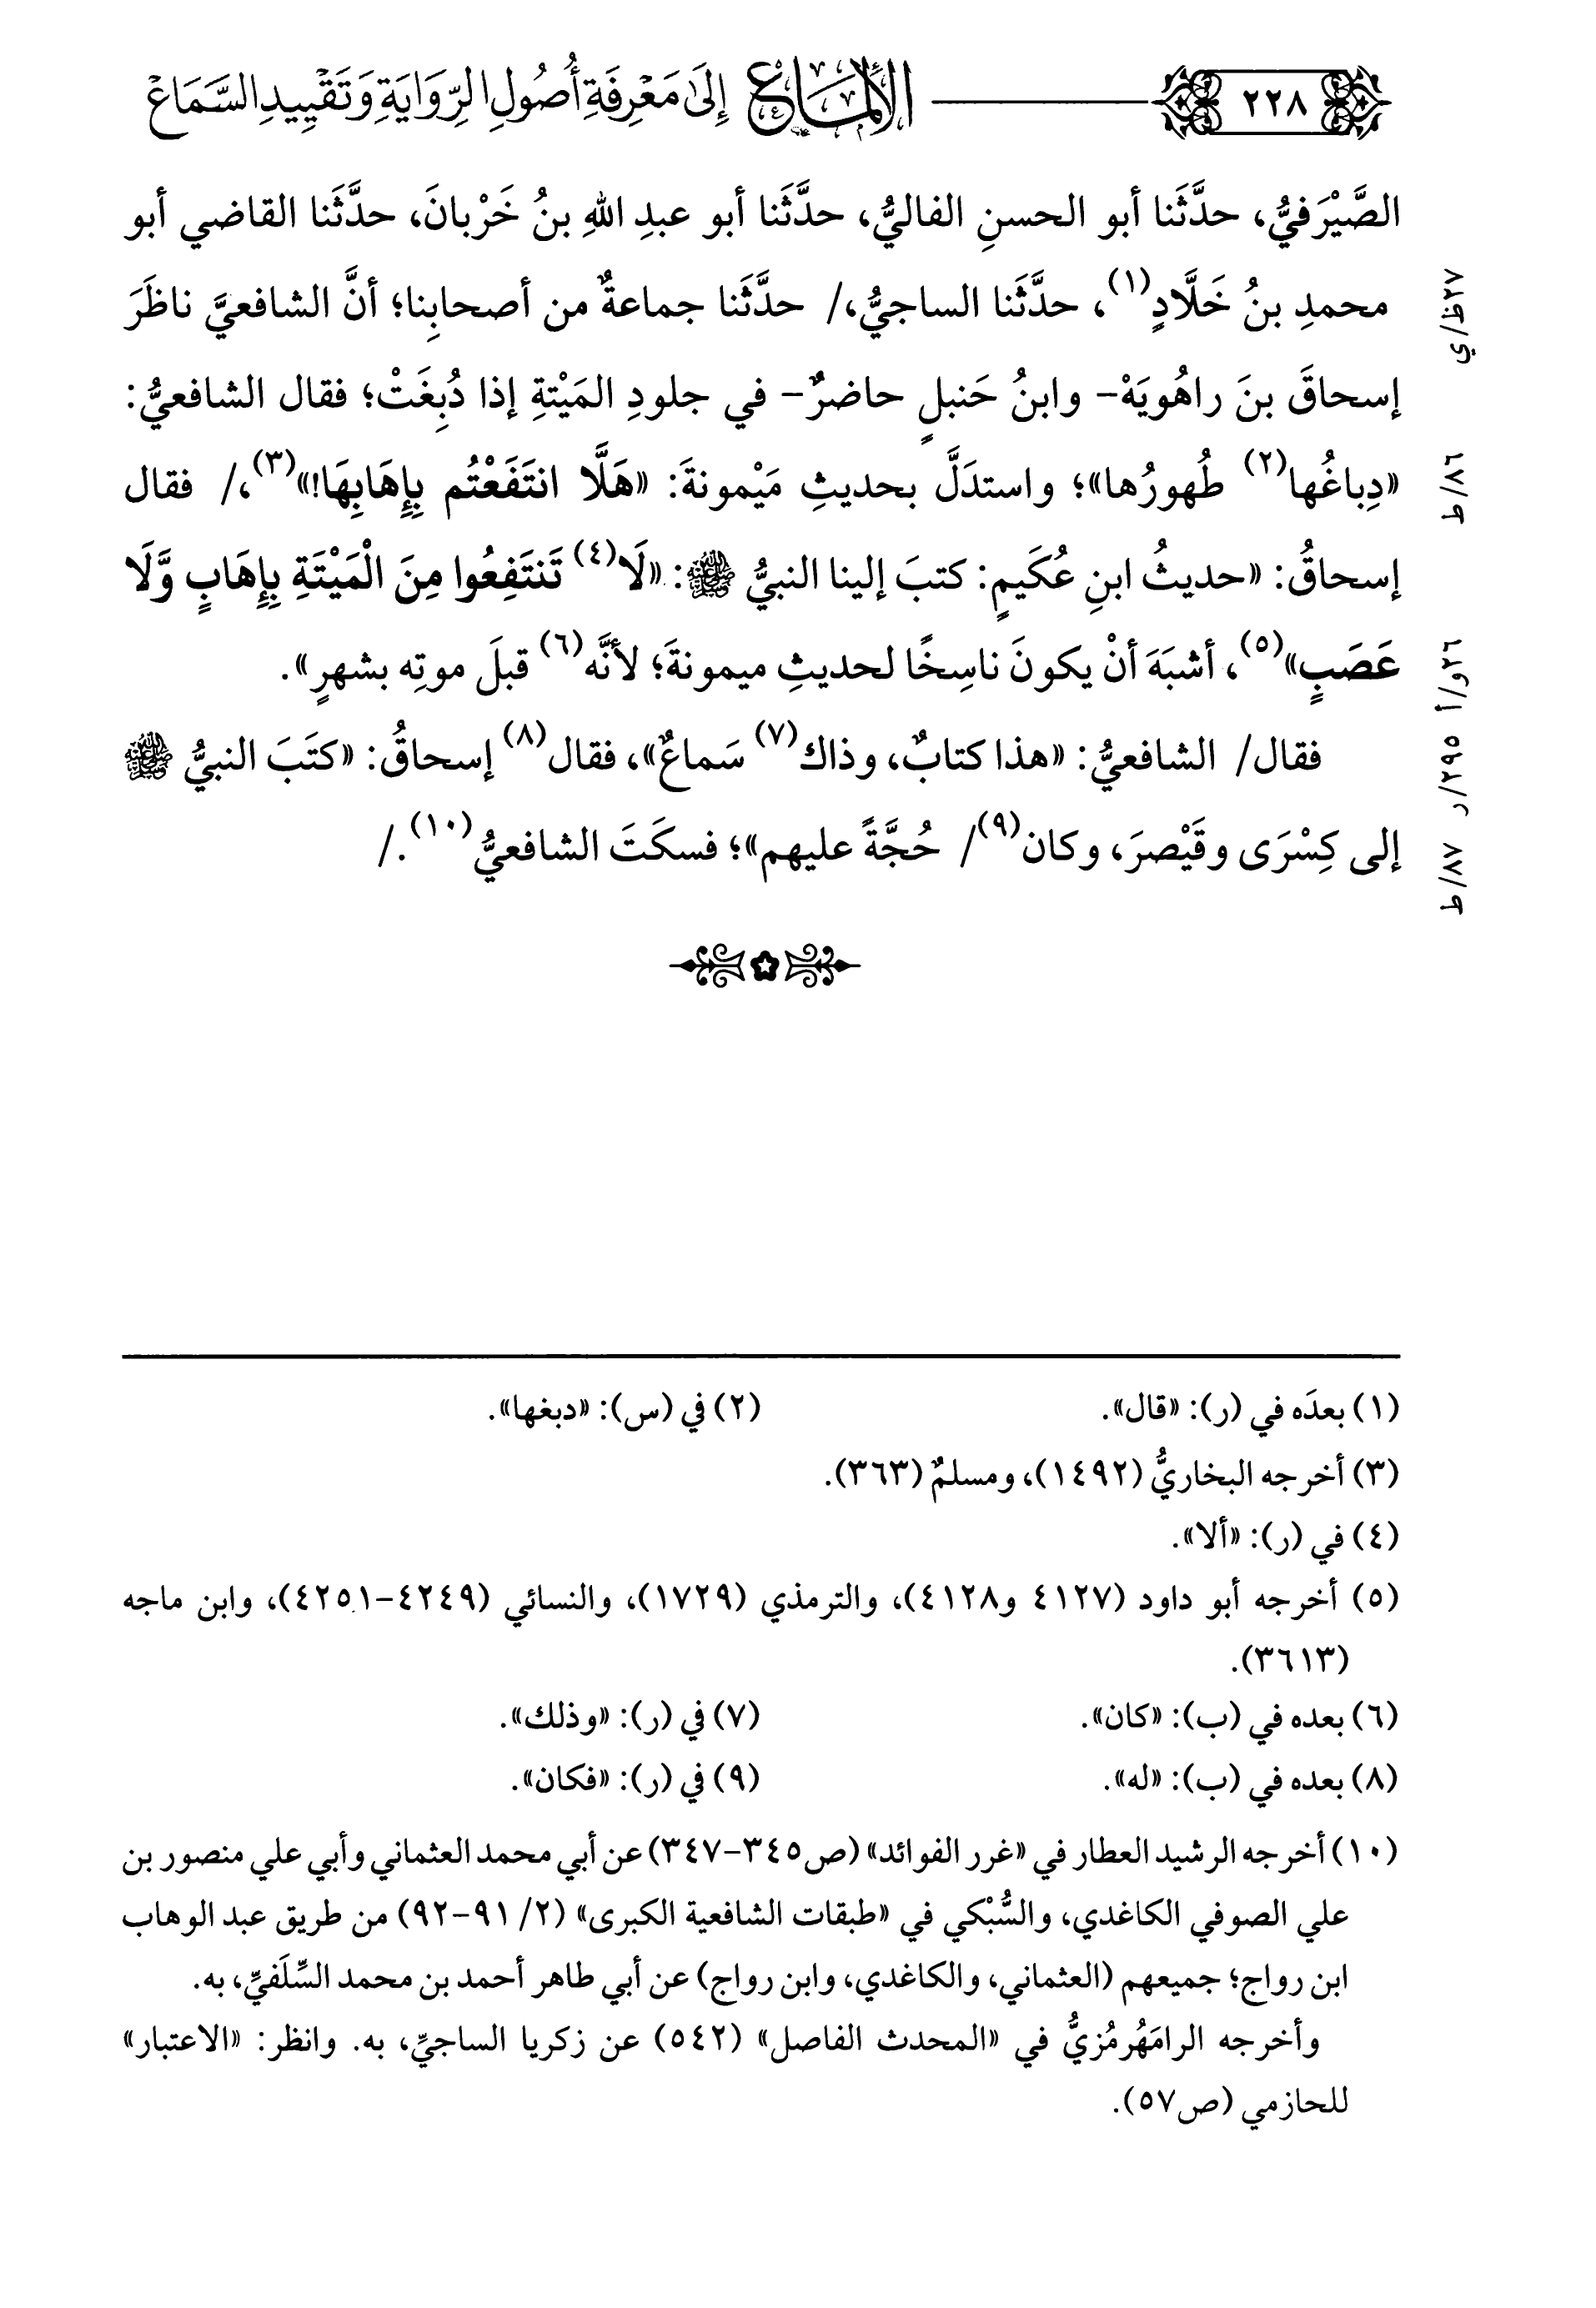 ٢٢٨ الإلماع إِلَى مَعْرِفَةِ أُصُولِ الرِّوَايَةِ وَتَقْيِيدِ السَّمَاعْ
الصَّيْرَفيُّ، حدَّثَنا أبو الحسنِ الفاليُّ، حدَّثَنا أبو عبدِ اللهِ بنُ خَرْبانَ، حدَّثَنا القاضي أبو
محمدِ بنُ خَلَّادٍ(١)، حدَّثَنا الساجيُّ،/ حدَّثَنا جماعةٌ من أصحابِنا؛ أنَّ الشافعيَّ ناظَرَ
٢٧ظ/ي
إسحاقَ بنَ راهُويَهْ- وابنُ حَنبلٍ حاضرٌ- في جلودِ المَيْتةِ إذا دُبِغَتْ؛ فقال الشافعيُّ:
«دِباغُها(٢) طُهورُها»؛ واستدَلَّ بحديثِ مَيْمونةَ: «هَلَّا انتَفَعْتُم بِإِهَابِهَا!»(٣)،/ فقال
٨٦/ط
إسحاقُ: «حديثُ ابنِ عُكَيمٍ: كتبَ إلينا النبيُّ ﷺ: «لَا(٤) تَنتَفِعُوا مِنَ الْمَيْتَةِ بِإِهَابٍ وَّلَا
عَصَبٍ»(٥)، أشبَهَ أنْ يكونَ ناسِخًا لحديثِ ميمونةَ؛ لأنَّه(٦) قبلَ موتِه بشهرٍ».
٢٦و/أ
فقال/ الشافعيُّ: «هذا كتابٌ، وذاك(٧) سَماعٌ»، فقال(٨) إسحاقُ: «كتَبَ النبيُّ ﷺ
٢٩٥/ر
إلى كِسْرَى وقَيْصرَ، وكان(٩)/ حُجَّةً عليهم»؛ فسكَتَ الشافعيُّ(١٠)./
٨٧/ط
(١) بعدَه في (ر): «قال». (٢) في (س): «دبغها».
(٣) أخرجه البخاريُّ (١٤٩٢)، ومسلمٌ (٣٦٣).
(٤) في (ر): «ألا».
(٥) أخرجه أبو داود (٤١٢٧ و٤١٢٨)، والترمذي (١٧٢٩)، والنسائي (٤٢٤٩-٤٢٥١)، وابن ماجه
(٣٦١٣).
(٦) بعده في (ب): «كان». (٧) في (ر): «وذلك».
(٨) بعده في (ب): «له». (٩) في (ر): «فكان».
(١٠) أخرجه الرشيد العطار في «غرر الفوائد» (ص٣٤٥-٣٤٧) عن أبي محمد العثماني وأبي علي منصور بن
علي الصوفي الكاغدي، والسُّبْكي في «طبقات الشافعية الكبرى» (٢/ ٩١-٩٢) من طريق عبد الوهاب
ابن رواج؛ جميعهم (العثماني، والكاغدي، وابن رواج) عن أبي طاهر أحمد بن محمد السِّلَفيِّ، به.
وأخرجه الرامَهُرمُزيُّ في «المحدث الفاصل» (٥٤٢) عن زكريا الساجيِّ، به. وانظر: «الاعتبار»
للحازمي (ص٥٧).